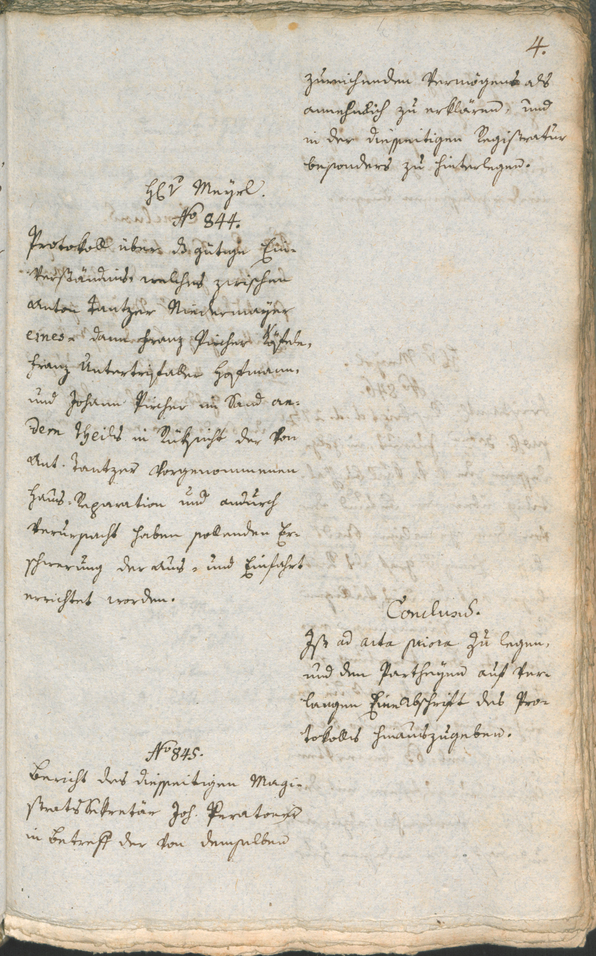 4.
zureichenden Vermögens als
annehmlich zu erklären, und
in der diesseitigen Registratur
besonders zu hinterlegen.
H. Meyrl.
No 844.
Protokoll über das gütige Ein-
verständnis welches zwischen
Anton Tantzer Niedermayer
eines- dann Franz Pircher
Franz Untertrifaller Hofmann,
und Johann Pircher im Sand an-
dern Theils in Rücksicht der von
Ant. Tantzer vorgenommenen
Haus-Reparation und andurch
verursacht haben sollenden Er-
schwerung der Aus- und Einfahrt
errichtet worden.
Conclusis.
Ist ad acta priora zu legen,
und den Partheyen auf Ver-
langen eine Abschrift des Pro-
tokolls hinauszugeben.
No 845.
Bericht des diesseitigen Magi-
stratssekretär Joh.
in Betreff der von demselben